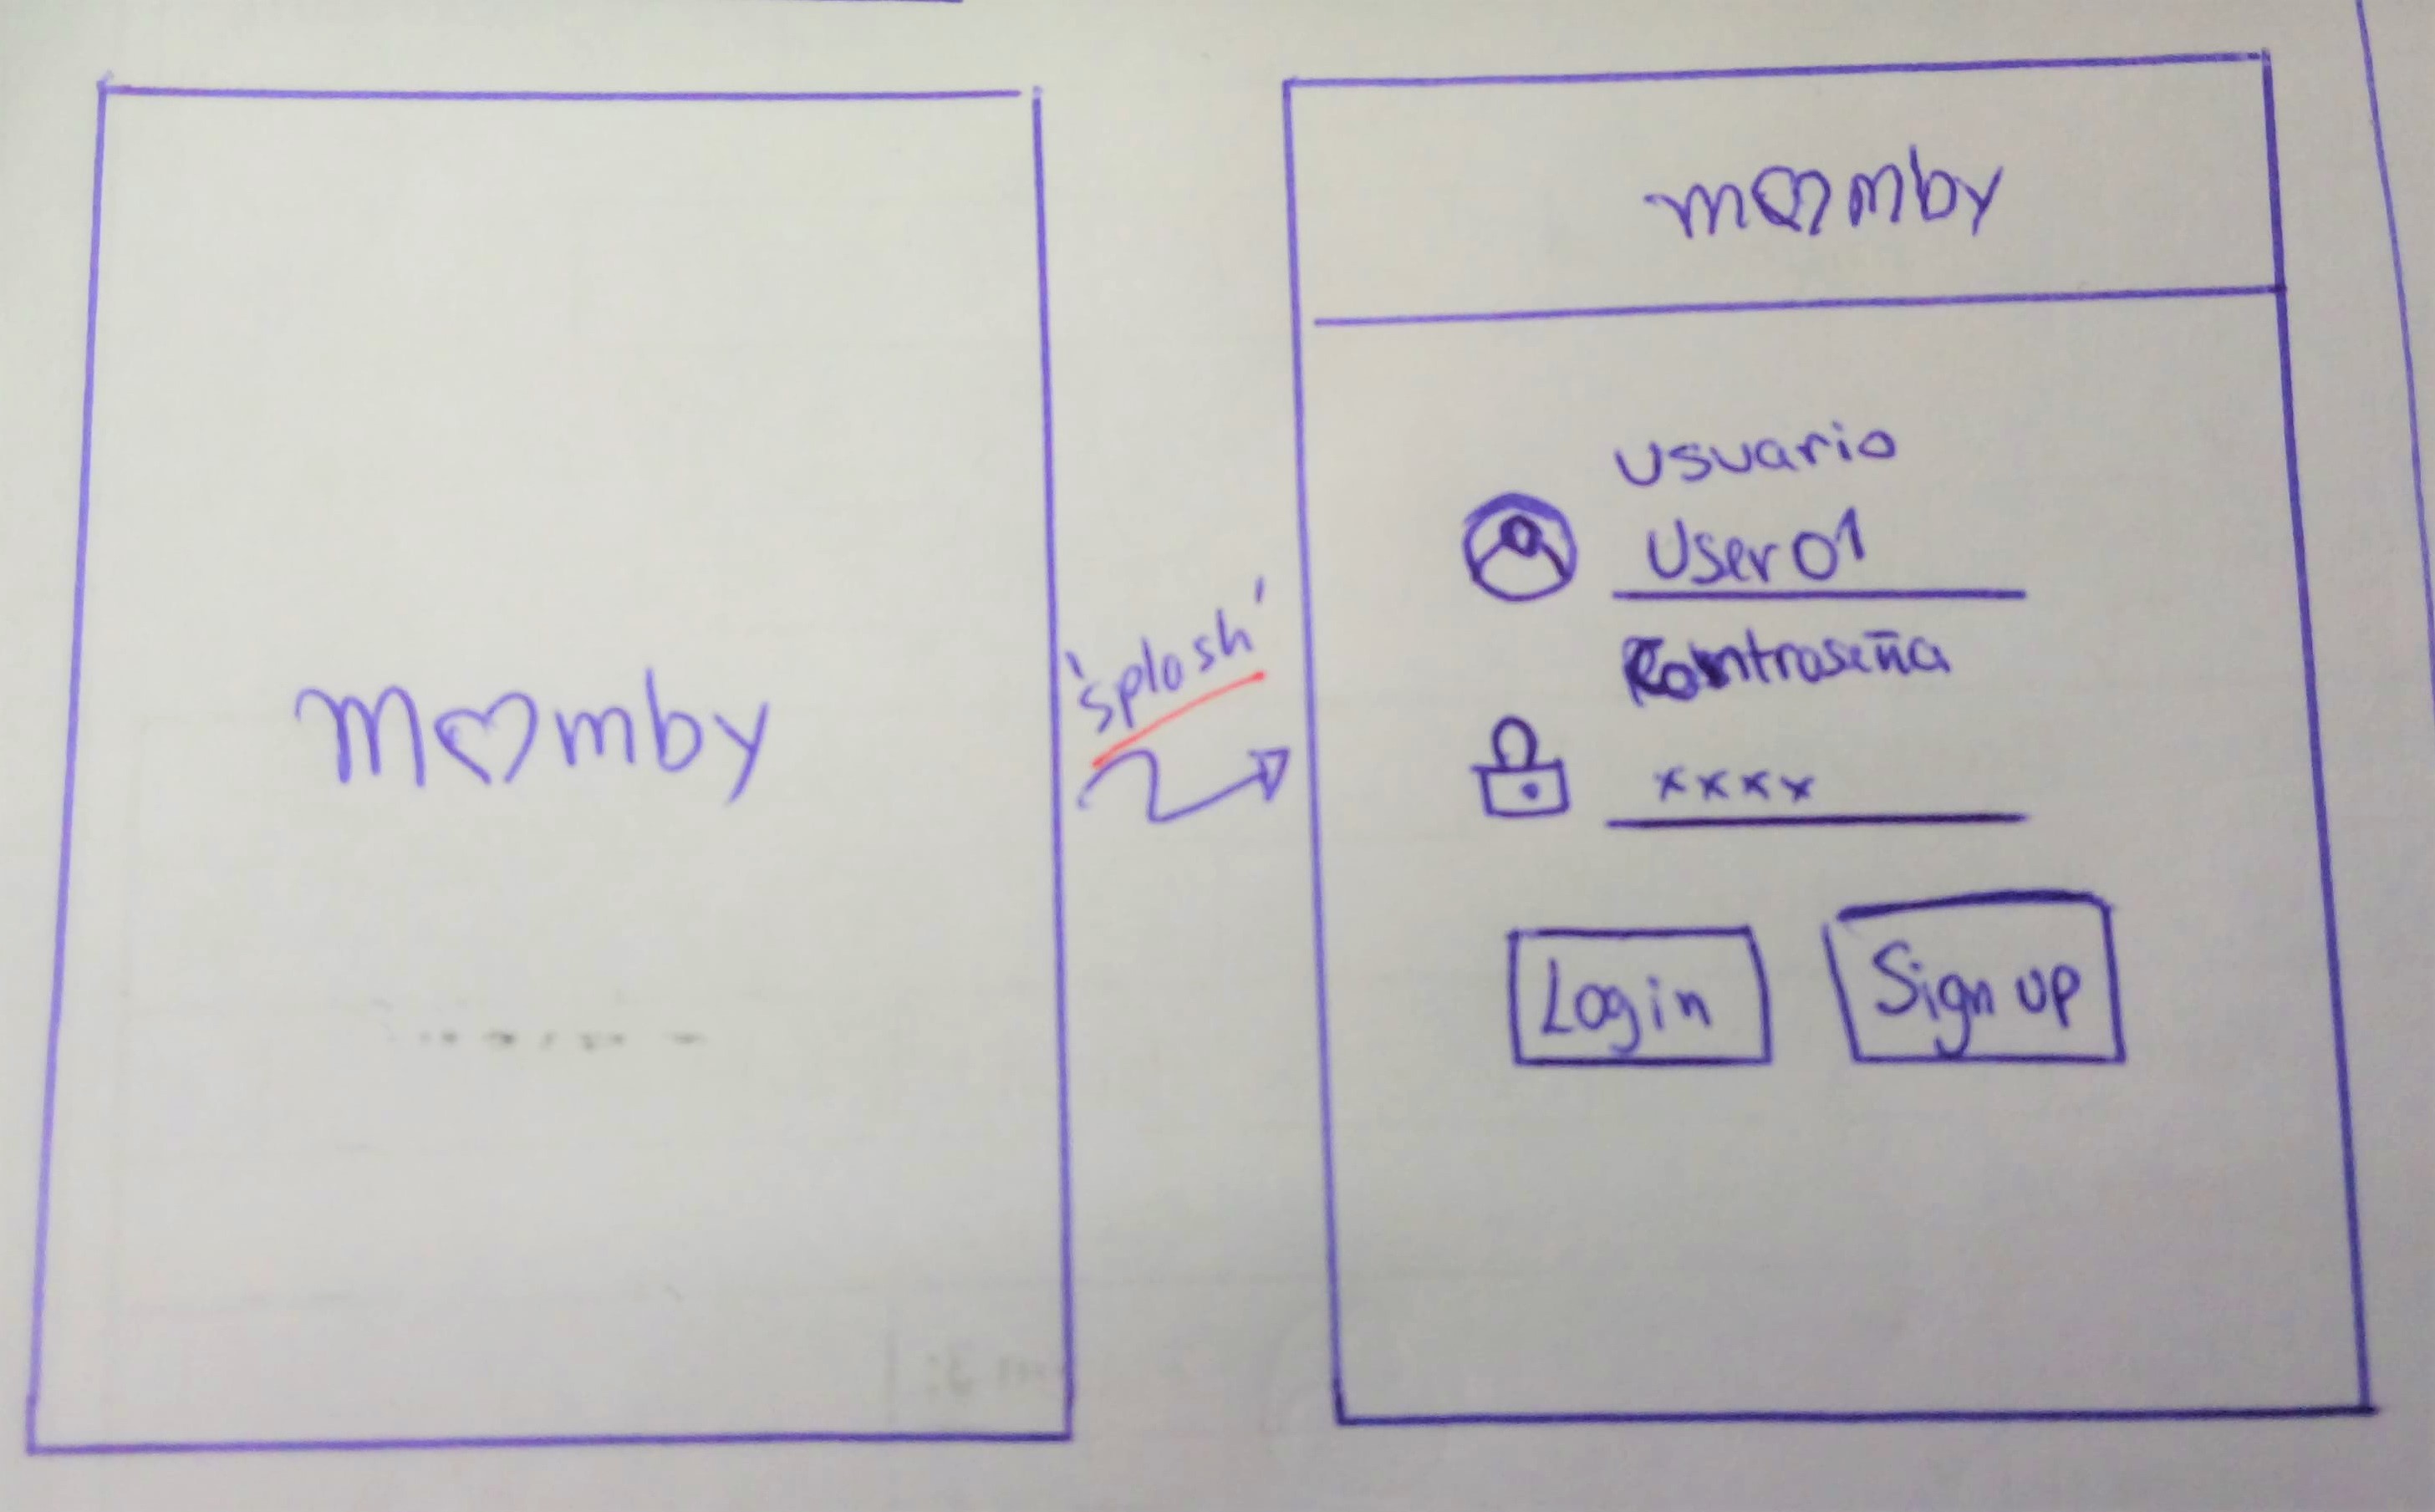 m♡mby
'splash'
m♡mby
Usuario
User01
Contraseña
xxxx
Login
Sign up